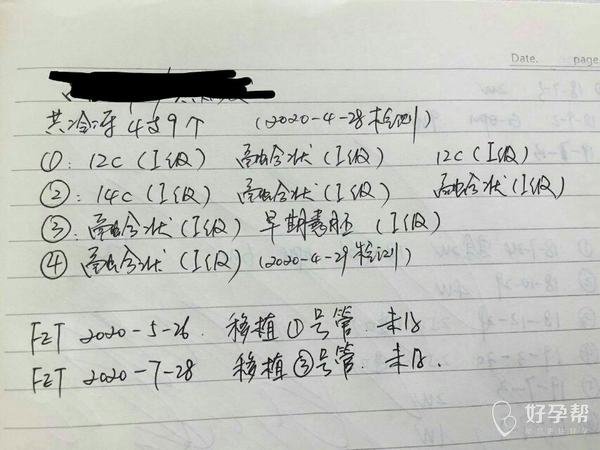 Date.    page.
共冷冻4支9个 (2020-4-28检测)
①: 12C (I级) 融合状 (I级) 12C (I级)
②: 14C (I级) 融合状 (I级) 融合状 (I级)
③: 融合状 (I级) 早期囊胚 (I级)
④ 融合状 (I级) (2020-4-29检测)
FET 2020-5-26. 移植①号管. 未
FET 2020-7-28 移植③号管. 未
好孕帮